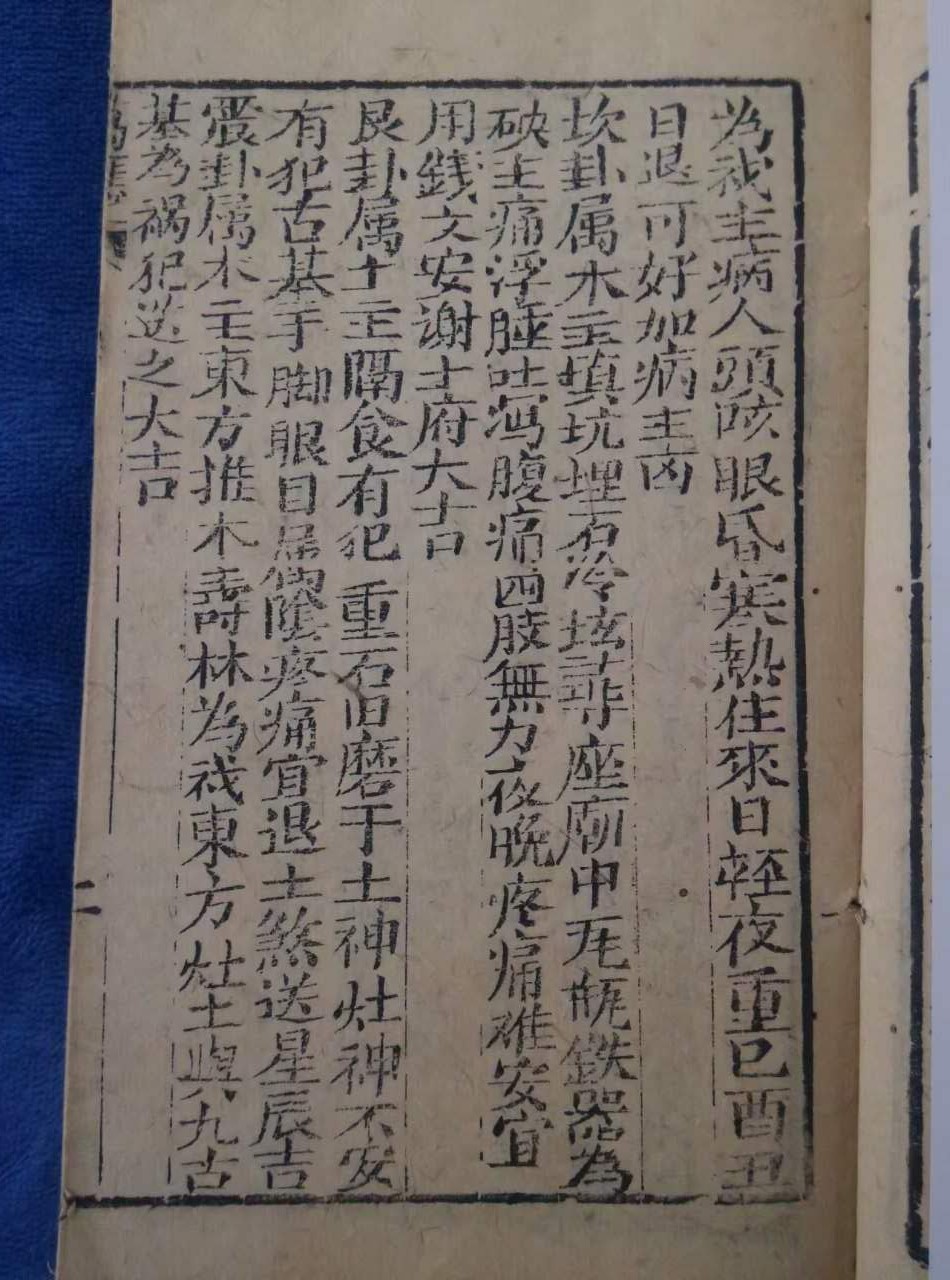 為戏主病人頭咳眼昏寒熱住來日輕夜重巳酉丑
日退可好加病主凶
坎卦属水主填坑埋石冷坛尋座廟中瓦瓶鉄器為
破主痛浮腫吐瀉腹痛四肢無力夜晩疼痛难安宜
用錢文安谢土府大吉
艮卦属土主隔食有犯重石旧磨干土神灶神不安
有犯古基手脚眼目陰疼痛宜退土煞送星辰吉
震卦属木主東方推木壽林為戏東方灶土與九古
基為禍犯送之大吉
二